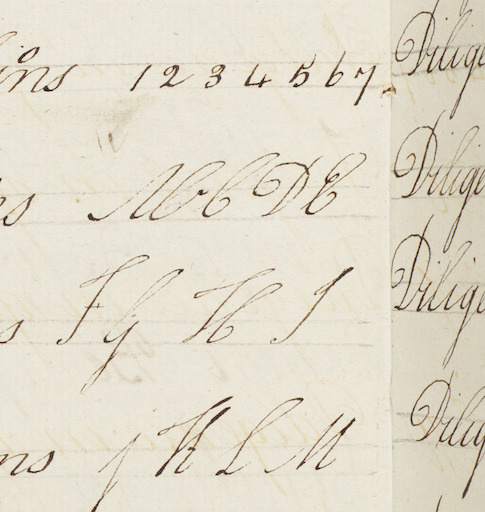 ins 1 2 3 4 5 6 7
s A B C D E
s F G H I
ns J K L M
Dilige
Dilige
Dilige
Dilig